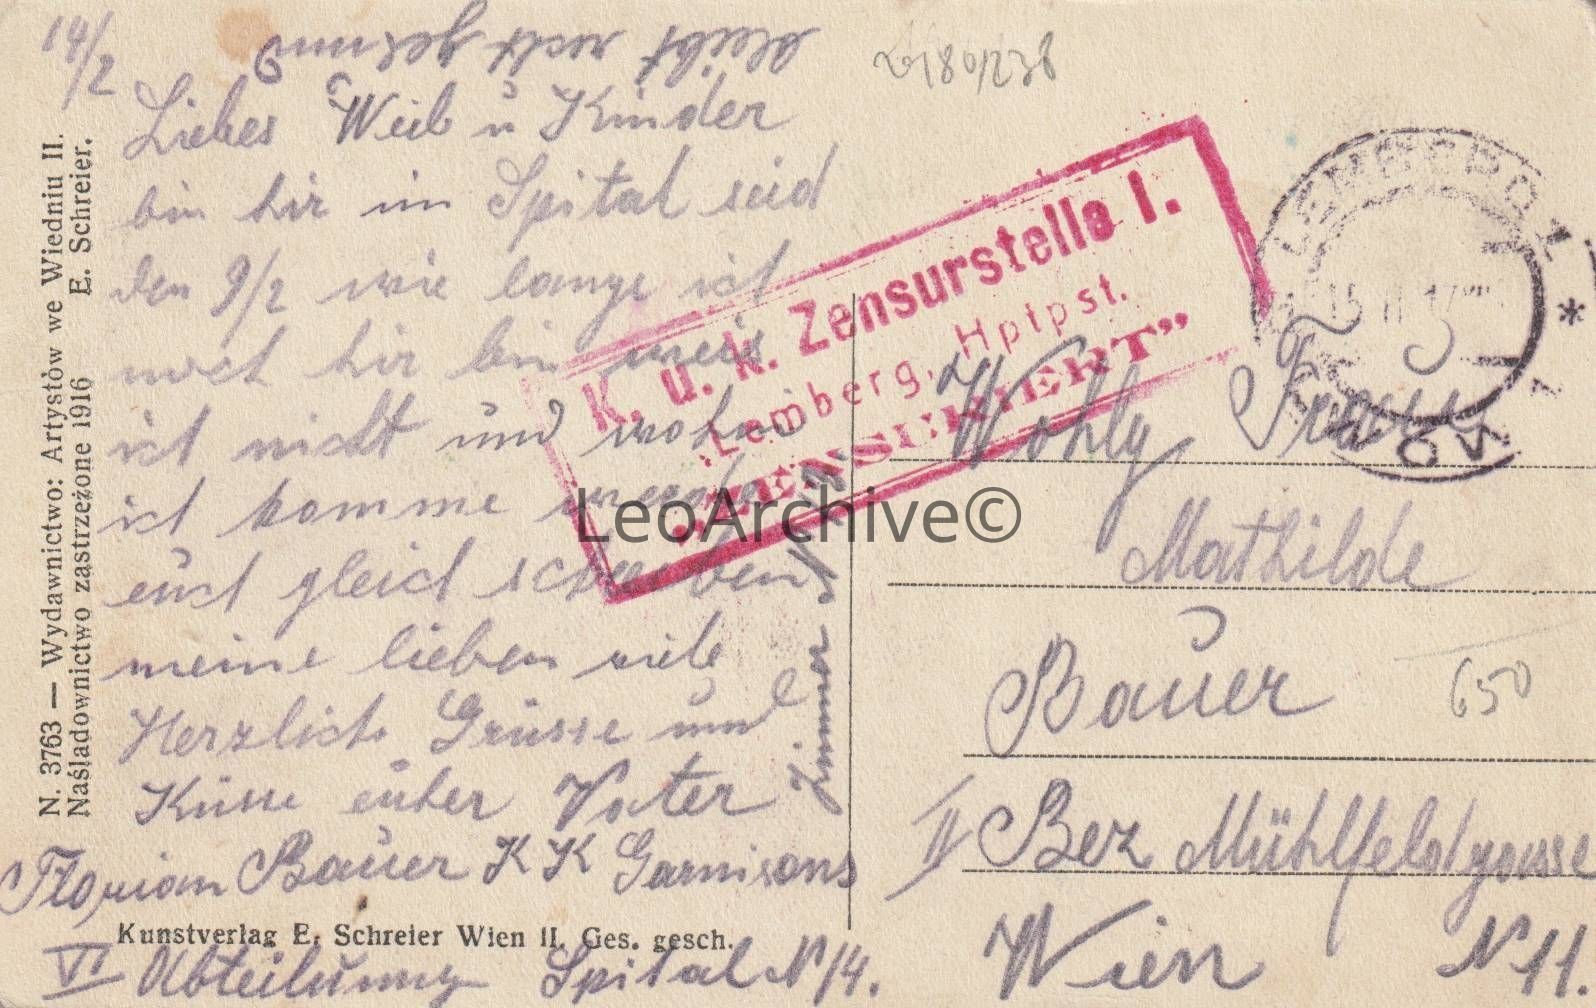 14/2
bleibt recht gesund
Liebes Weib u Kinder
bin hir im Spital seid
den 9/2 wie lange ich
noch hir bin weis
ich nicht und wohin
ich komme werde
euch gleich schreiben
meine lieben viele
Herzliche Grüsse und
Küsse eucher Vater
Florian Bauer K K Garnisons
VI Abteilung Spital N 14.
Zimmer N
N. 3763 — Wydawnictwo: Artystów we Wiedniu II.
Naśladownictwo zastrzeżone 1916 E. Schreier.
Kunstverlag E. Schreier Wien II. Ges. gesch.
K. u. k. Zensurstelle I.
Lemberg, Hptpst.
„ZENSURIERT”
LEMBERG 1
15 II 17
LWÓW 1
Wohlg. Frau
Mathilde
Bauer
650
II Bez Mühlfeldgasse
Wien N 11.
LeoArchive©